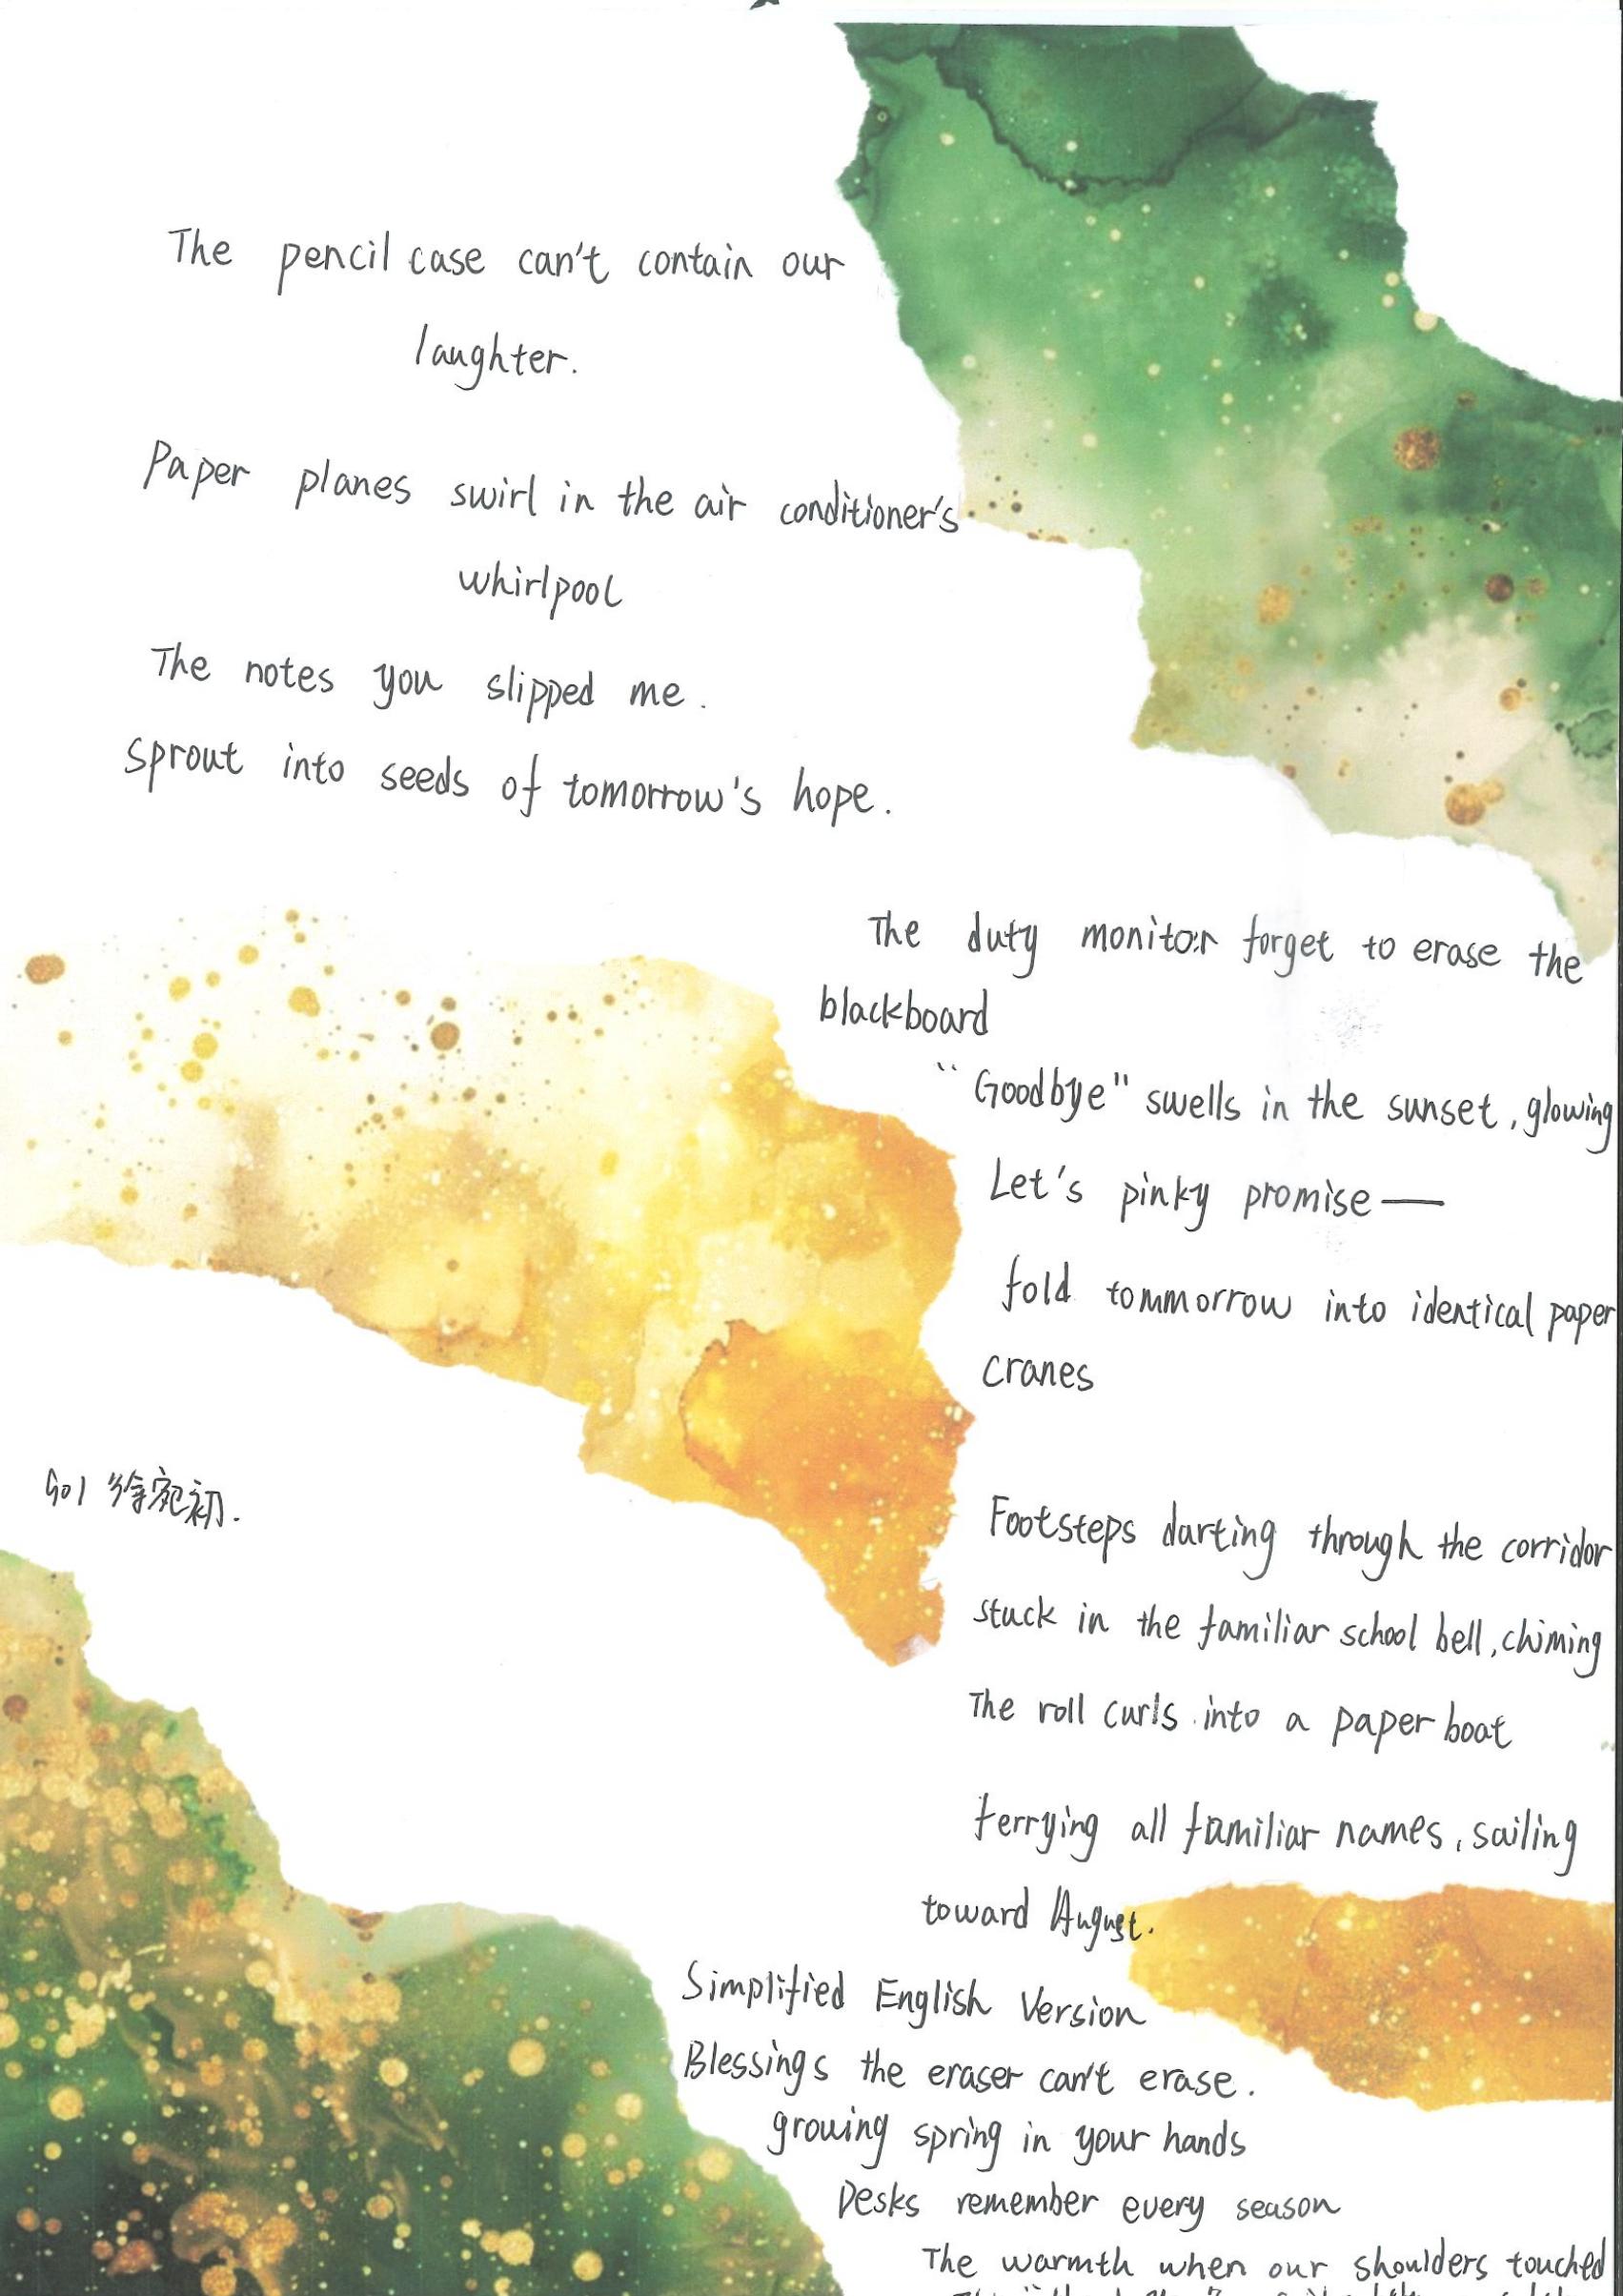 The pencil case can't contain our
laughter.
Paper planes swirl in the air conditioner's
whirlpool
The notes you slipped me.
Sprout into seeds of tomorrow's hope.
The duty monitor forget to erase the
blackboard
“Goodbye” swells in the sunset, glowing
Let's pinky promise—
fold tommorrow into identical paper
cranes
601 徐宛初.
Footsteps darting through the corridor
stuck in the familiar school bell, chiming
The roll curls into a paper boat
ferrying all familiar names, sailing
toward August.
Simplified English Version
Blessings the eraser can't erase.
growing spring in your hands
Desks remember every season
The warmth when our shoulders touched